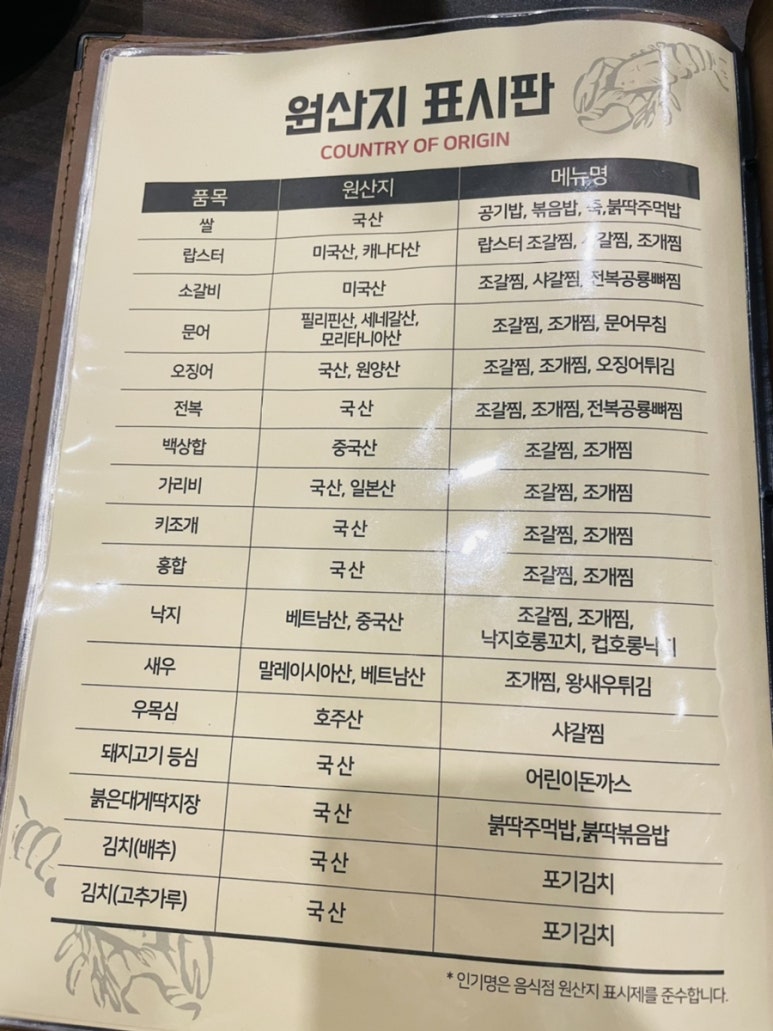 원산지 표시판
COUNTRY OF ORIGIN
품목 원산지 메뉴명
쌀 국산 공기밥, 볶음밥, 죽,붉딱주먹밥
랍스터 미국산, 캐나다산 랍스터 조갈찜, 갈찜, 조개찜
소갈비 미국산 조갈찜, 샤갈찜, 전복공룡뼈찜
문어 필리핀산, 세네갈산, 조갈찜, 조개찜, 문어무침
모리타니아산
오징어 국산, 원양산 조갈찜, 조개찜, 오징어튀김
전복 국산 조갈찜, 조개찜, 전복공룡뼈찜
백상합 중국산 조갈찜, 조개찜
가리비 국산, 일본산 조갈찜, 조개찜
키조개 국산 조갈찜, 조개찜
홍합 국산 조갈찜, 조개찜
낙지 베트남산, 중국산 조갈찜, 조개찜,
낙지호롱꼬치, 컵호롱낙지
새우 말레이시아산, 베트남산 조개찜, 왕새우튀김
우목심 호주산 샤갈찜
돼지고기 등심 국산 어린이돈까스
붉은대게딱지장 국산 붉딱주먹밥,붉딱볶음밥
김치(배추) 국산 포기김치
김치(고추가루) 국산 포기김치
* 인기명은 음식점 원산지 표시제를 준수합니다.